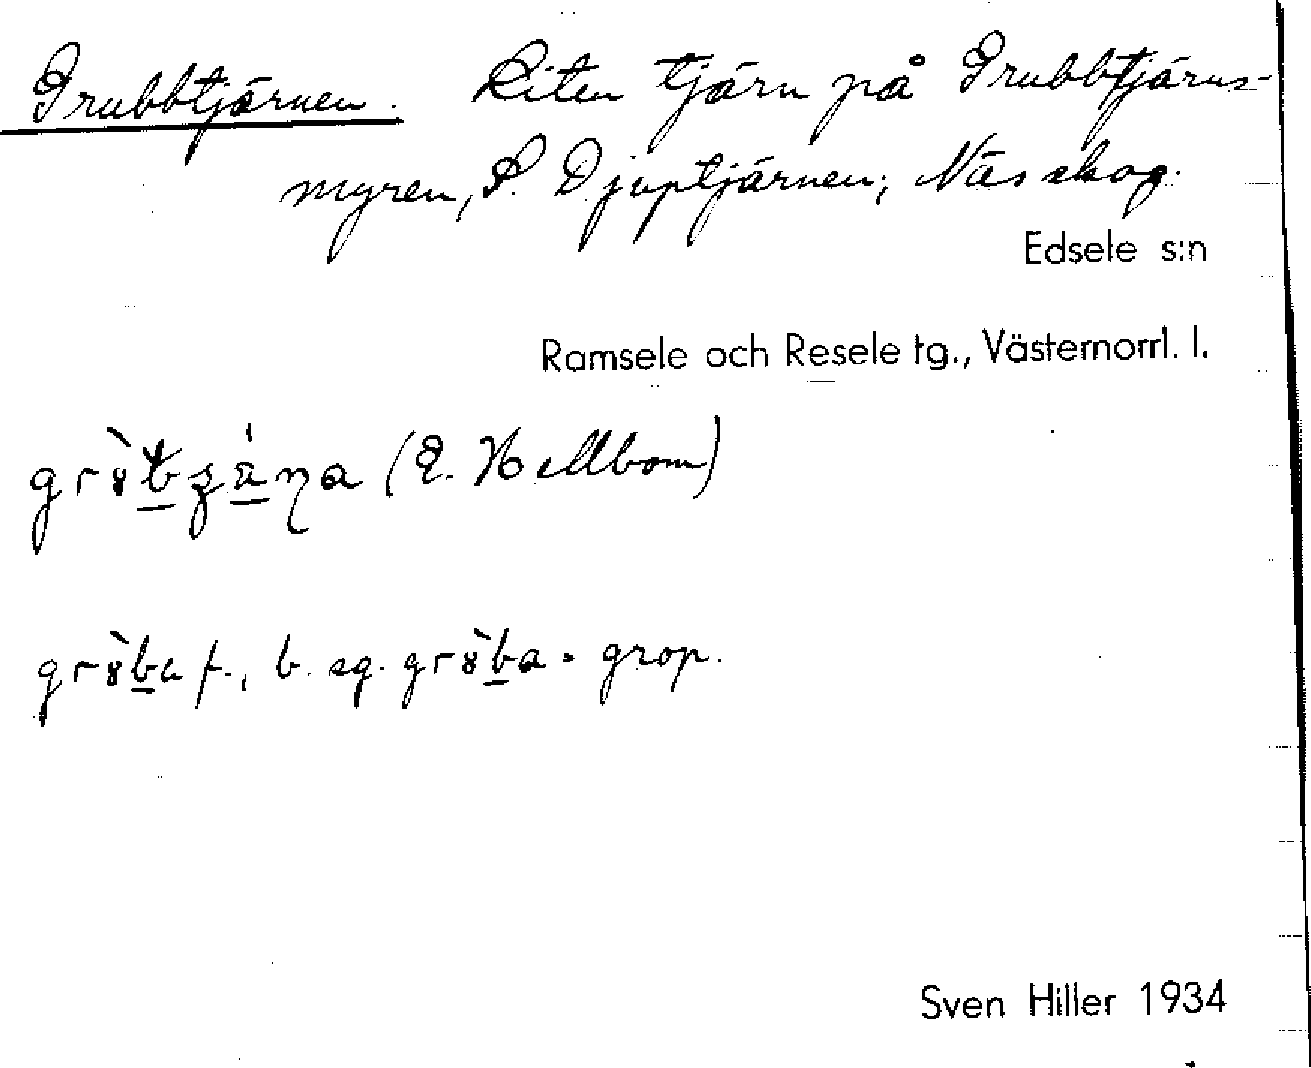 Grubbtjärnen. Liten tjärn på Grubbtjärns-
myren, S. Djuptjärnen; Näs skog.
Edsele s:n
Ramsele och Resele tg., Västernorrl. l.
(E. Hellbom)
f., b. sg. = grop.
Sven Hiller 1934